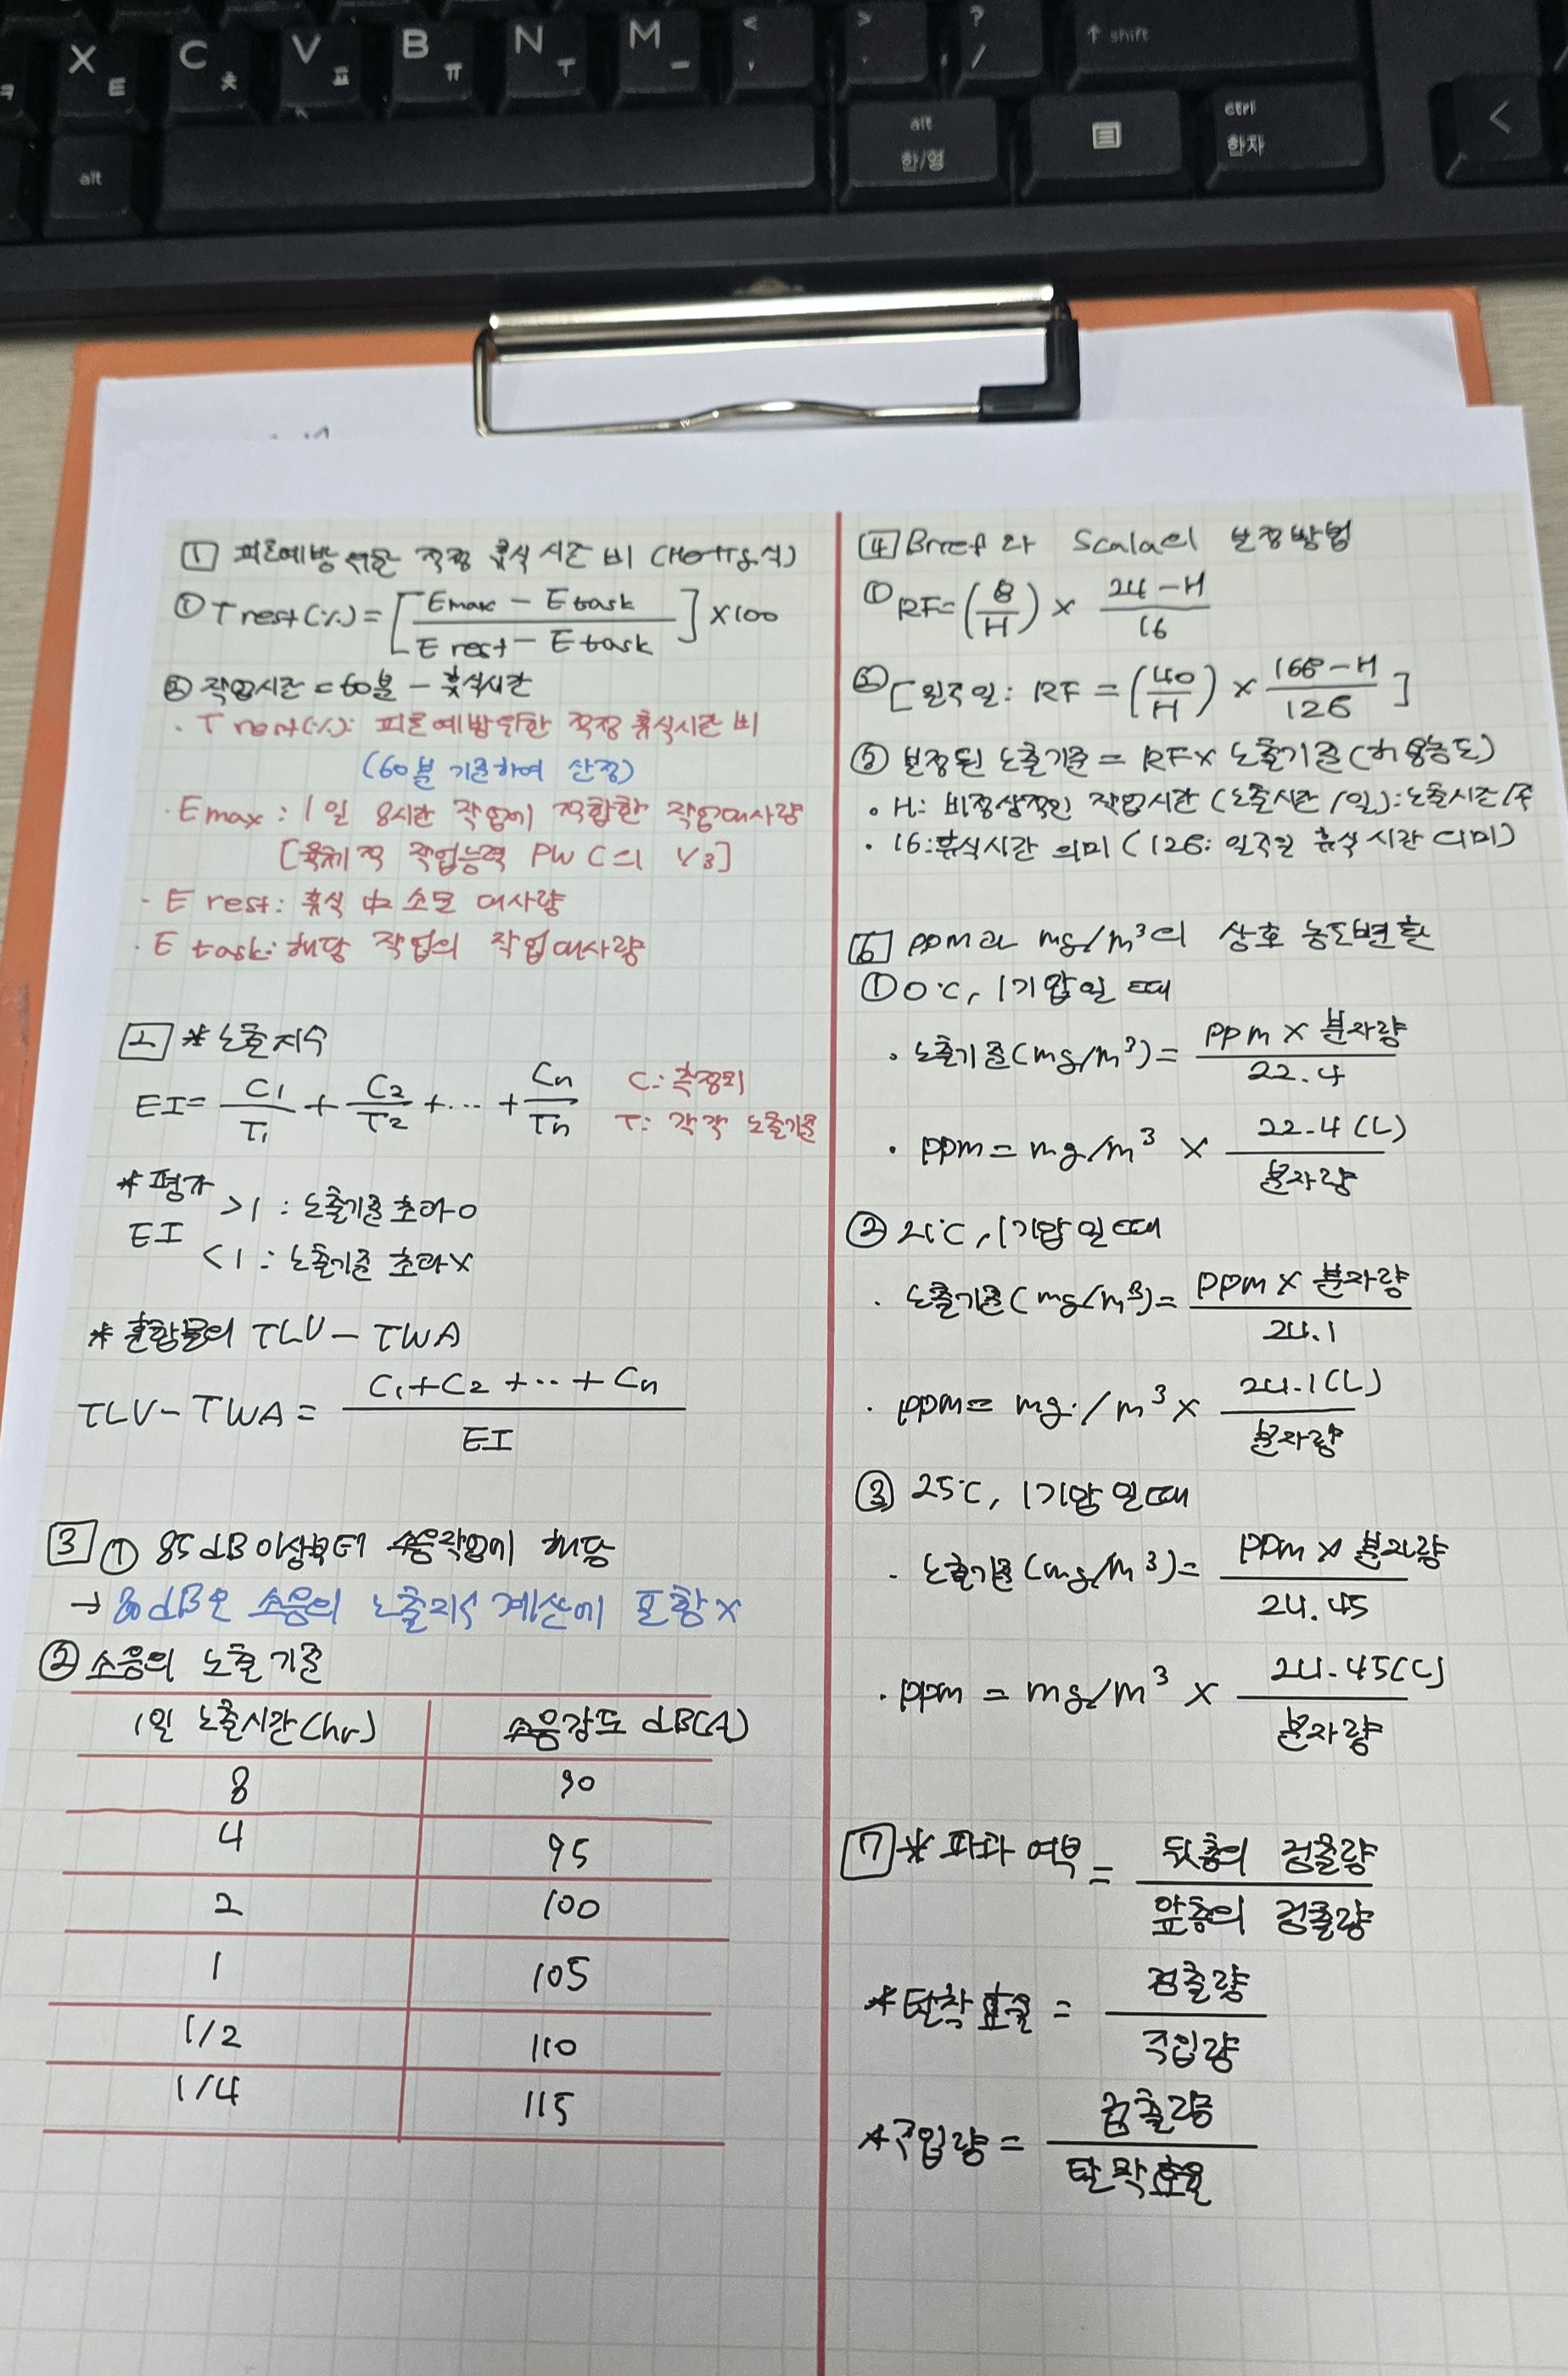 X ㅌ C ㅊ V ㅍ B ㅠ N ㅜ M ㅡ < , > . ? / ↑ shift
alt alt 한/영 ctrl 한자 <
1 피로예방 위한 적정 휴식시간 비 (Hertig식)
① T rest(%) = [ (Emax - E task) / (E rest - E task) ] × 100
② 작업시간 = 60분 - 휴식시간
· T rest(%): 피로예방위한 적정 휴식시간 비
(60분 기준하여 산정)
· Emax : 1일 8시간 작업에 적합한 작업대사량
[육체적 작업능력 PWC의 1/3]
· E rest: 휴식 中 소모 대사량
· E task: 해당 작업의 작업대사량
2 * 노출지수
EI = C1/T1 + C2/T2 + ... + Cn/Tn
C: 측정치
T: 각각 노출기준
* 평가
EI >1 : 노출기준 초과 O
<1 : 노출기준 초과 X
* 혼합물의 TLV - TWA
TLV - TWA = (C1 + C2 + ... + Cn) / EI
3 ① 85dB 이상부터 소음작업에 해당
→ 80dB은 소음의 노출지수 계산에 포함 X
② 소음의 노출기준
1일 노출시간(hr) 소음강도 dB(A)
8 90
4 95
2 100
1 105
1/2 110
1/4 115
4 Brief와 Scala의 보정방법
① RF = (8/H) × (24 - H)/16
② [일주일: RF = (40/H) × (168 - H)/128]
③ 보정된 노출기준 = RF × 노출기준(허용농도)
· H: 비정상적인 작업시간 (노출시간/일): 노출시간/주
· 16: 휴식시간 의미 (128: 일주일 휴식시간 의미)
6 ppm과 mg/m³의 상호 농도변환
① 0℃, 1기압일 때
· 노출기준(mg/m³) = (ppm × 분자량) / 22.4
· ppm = mg/m³ × 22.4(L) / 분자량
② 21℃, 1기압일 때
· 노출기준(mg/m³) = (ppm × 분자량) / 24.1
· ppm = mg/m³ × 24.1(L) / 분자량
③ 25℃, 1기압일때
· 노출기준(mg/m³) = (ppm × 분자량) / 24.45
· ppm = mg/m³ × 24.45(L) / 분자량
7 * 파과 여부 = 뒤층의 검출량 / 앞층의 검출량
* 탈착효율 = 검출량 / 주입량
* 주입량 = 검출량 / 탈착효율